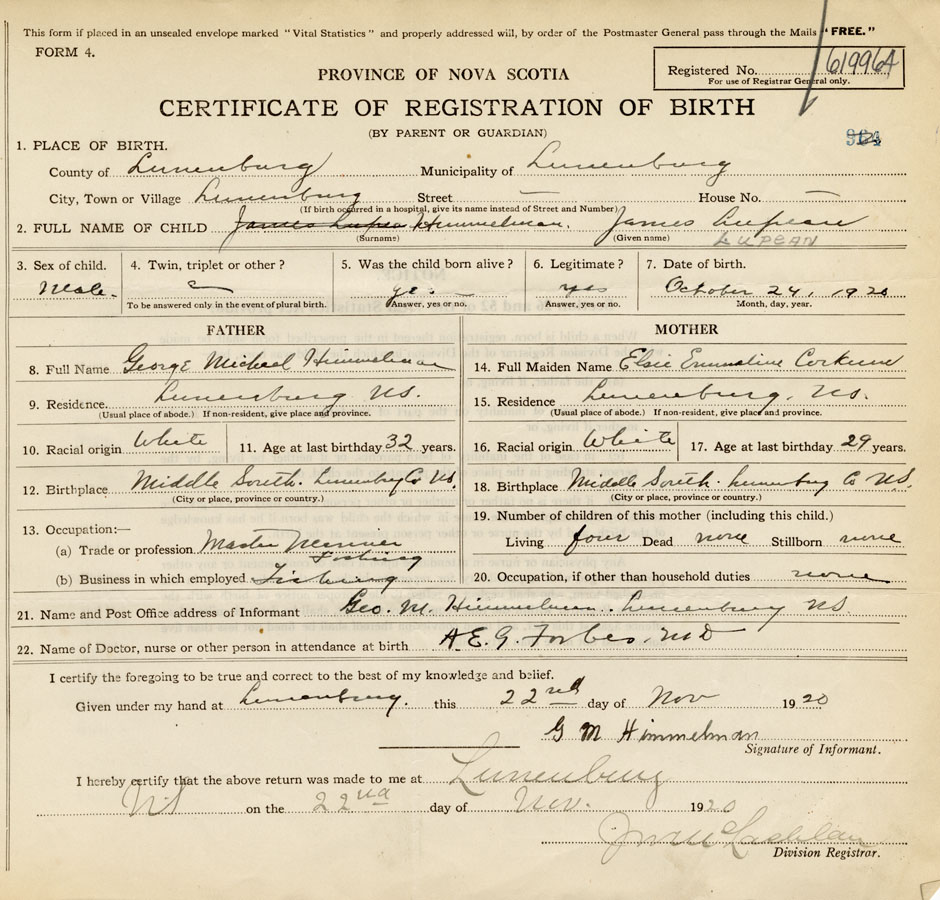 This form if placed in an unsealed envelope marked "Vital Statistics" and properly addressed will, by order of the Postmaster General pass through the Mails "FREE."
FORM 4.
PROVINCE OF NOVA SCOTIA
Registered No. 619964
For use of Registrar General only.
CERTIFICATE OF REGISTRATION OF BIRTH
(BY PARENT OR GUARDIAN)
1. PLACE OF BIRTH.
County of Lunenburg Municipality of Lunenburg
City, Town or Village Lunenburg Street — House No. —
(If birth occurred in a hospital, give its name instead of Street and Number)
2. FULL NAME OF CHILD James Lupean Himmelman. James Lupean
(Surname) (Given name) LUPEAN
3. Sex of child. 4. Twin, triplet or other? 5. Was the child born alive? 6. Legitimate? 7. Date of birth.
Male. yes. yes October 24, 1920
To be answered only in the event of plural birth. Answer, yes or no. Answer, yes or no. Month, day, year.
FATHER MOTHER
8. Full Name George Michael Himmelman 14. Full Maiden Name Elsie Emmaline Corkum
9. Residence. Lunenburg NS. 15. Residence Lunenburg, NS.
(Usual place of abode.) If non-resident, give place and province. (Usual place of abode.) If non-resident, give place and province.
10. Racial origin White 11. Age at last birthday 32 years. 16. Racial origin White 17. Age at last birthday 29 years.
12. Birthplace Middle South. Lunenburg Co NS. 18. Birthplace Middle South. Lunenburg Co NS.
(City or place, province or country.) (City or place, province or country.)
13. Occupation:— 19. Number of children of this mother (including this child.)
(a) Trade or profession. Master Mariner Fishing Living four Dead none Stillborn none
(b) Business in which employed Fishing 20. Occupation, if other than household duties none
21. Name and Post Office address of Informant Geo. M. Himmelman. Lunenburg NS.
22. Name of Doctor, nurse or other person in attendance at birth A.E.G. Forbes, MD
I certify the foregoing to be true and correct to the best of my knowledge and belief.
Given under my hand at Lunenburg. this 22nd day of Nov 1920
G M Himmelman
Signature of Informant.
I hereby certify that the above return was made to me at Lunenburg
NS on the 22nd day of Nov. 1920
Division Registrar.